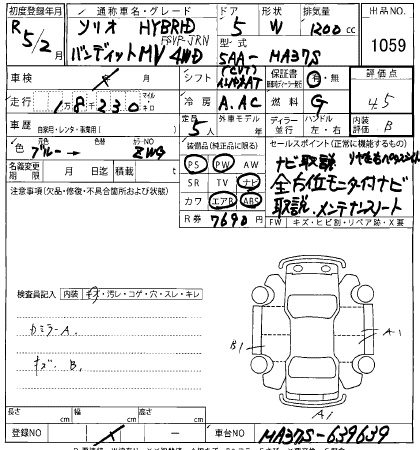 初度登録年月 通称車名・グレード ドア 形状 排気量 出品NO
R 5/2月 ソリオ HYBRID 5 W 1200cc 1059
FSVP-JRN
バンディット MV 4WD
型式 5AA-MA37S
車検 年 月 シフト (CVT) インパネAT 保証書 有・無 評価点
走行 1万8230 マイル キロ 冷房 A.AC 燃料 G 4.5
車歴 自家用・レンタ・事業用( ) 定員 5人 外車モデル 年 ディーラー 並行 ハンドル 左・右 内装評価 B
色 元色 ブルー→ 色替 カラーNO ZWG
装備品(純正品に限る) セールスポイント(正常に機能するもの)
名義変更期限 月 日迄 積載 t
PS PW AW ナビ取説
SR TV ナビ 全方位モニター付ナビ
カワ エアB ABS 取説、メンテナンスノート
注意事項(欠品・修復・不具合箇所および状態)
R券 7690 円
FW キズ・ヒビ割・リペア跡・X要
検査員記入 内装 キズ・汚レ・コゲ・穴・スレ・キレ
カミラーA.
キズ B.
B1 A1
A1
長さ cm 幅 cm 高さ cm
登録NO 車台NO MA37S-639639